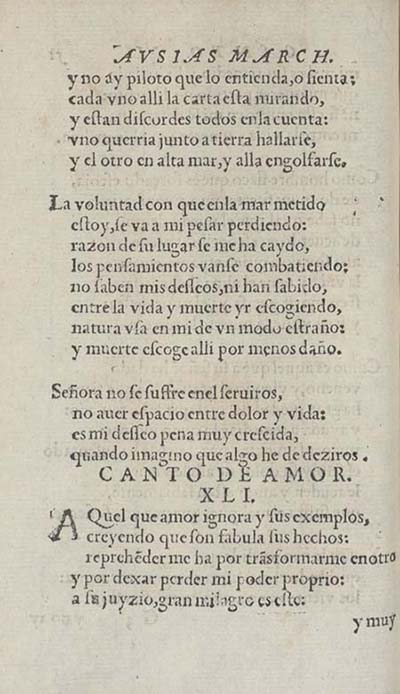 AVSIAS MARCH.
y no ay piloto que lo entienda, o sienta;
cada vno alli la carta esta mirando,
y estan discordes todos en la cuenta:
vno querria junto a tierra hallarse,
y el otro en alta mar, y alla engolfarse.
La voluntad con que en la mar metido
estoy, se va a mi pesar perdiendo:
razon de su lugar se me ha caydo,
los pensamientos vanse combatiendo;
no saben mis desseos, ni han sabido,
entre la vida y muerte yr escogiendo,
natura vsa en mi de vn modo estraño:
y muerte escoge alli por menos daño.
Señora no se suffre en el seruiros,
no auer espacio entre dolor y vida:
es mi desseo pena muy crescida,
quando imagino que algo he de deziros.
CANTO DE AMOR.
XLI.
AQuel que amor ignora y sus exemplos,
creyendo que son fabula sus hechos:
reprehẽder me ha por trãsformarme en otro
y por dexar perder mi poder proprio:
a su juyzio, gran milagro es este:
y muy